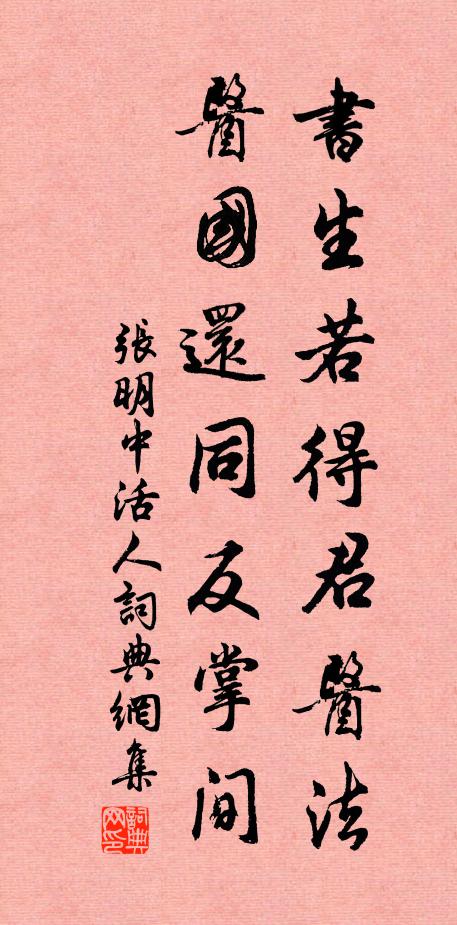 書生若得君醫法
醫國還同反掌間
張明中活人詞典網集
詞典网印